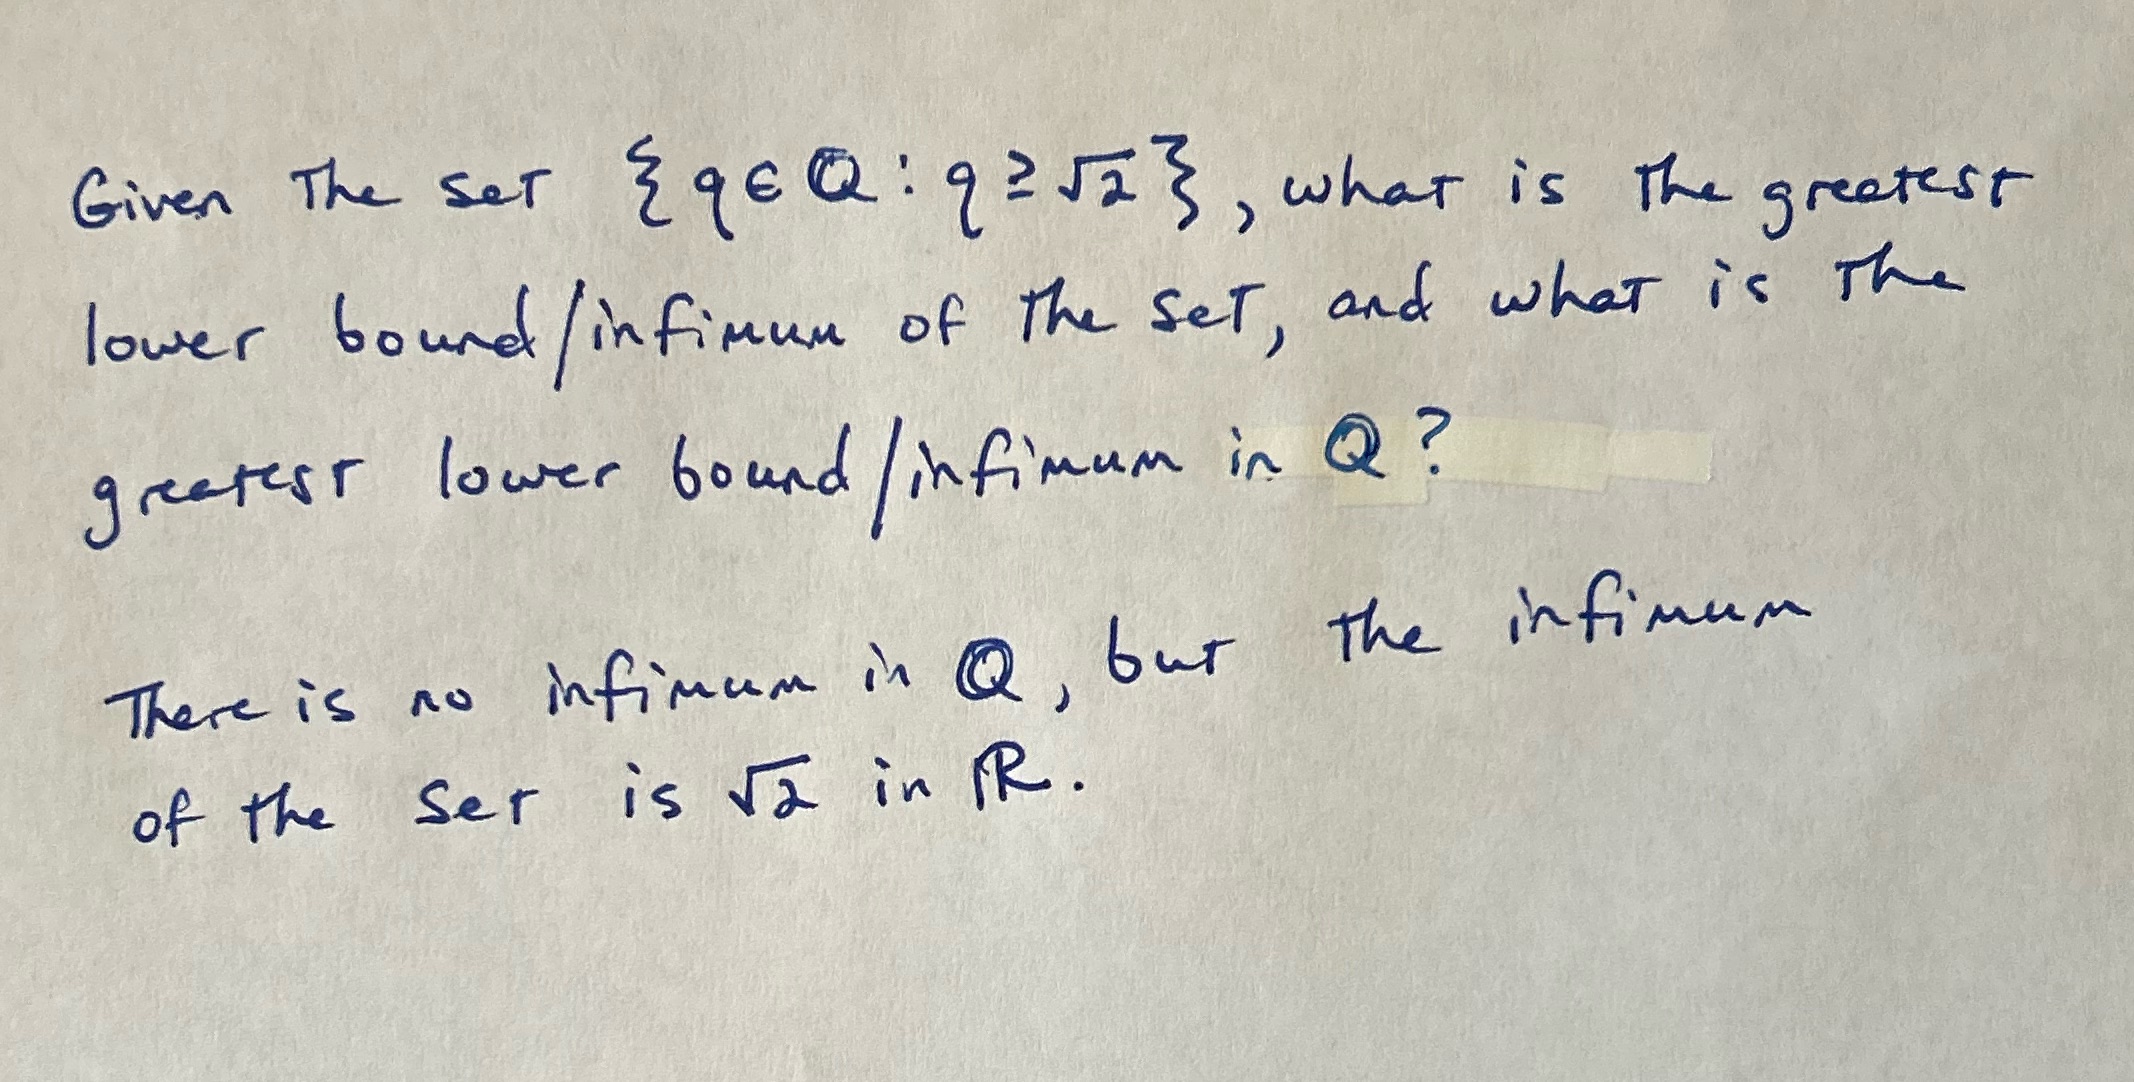 Given the set {q ∈ ℚ : q ≥ √2}, what is the greatest
lower bound/infimum of the set, and what is the
greatest lower bound/infimum in ℚ?
There is no infimum in ℚ, but the infimum
of the set is √2 in ℝ.